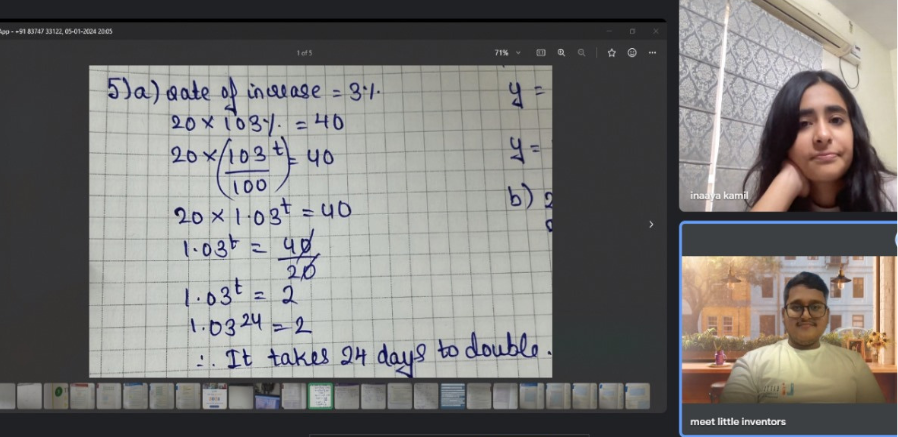 App - +91 83747 33122, 05-01-2024 20:05
1 of 5
71%
5)a) Rate of increase = 3%.
20 × 103%. = 40
20 × (103/100 t) = 40
20 × 1.03^t = 40
1.03^t = 40/20
1.03^t = 2
1.03^24 = 2
∴ It takes 24 days to double.
y =
y =
b) 2
inaaya kamil
meet little inventors